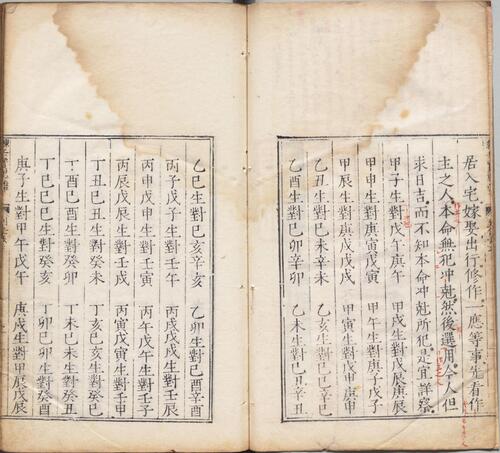 居入宅嫁娶出行修作一應等事先看作
主之人本命無犯冲尅然後選用今人但
求日吉而不知本命冲尅所犯是宜詳察
甲子生對戊午庚午　甲戌生對戊辰庚辰
甲申生對庚寅戊寅　甲午生對庚子戊子
甲辰生對庚戌戊戌　甲寅生對戊申庚申
乙丑生對己未辛未　乙亥生對辛巳己巳
乙酉生對己卯辛卯　乙未生對己丑辛丑
乙巳生對己亥辛亥　乙卯生對己酉辛酉
丙子生對戊午壬午　丙戌生對戊辰壬辰
丙申生對戊寅壬寅　丙午生對戊子壬子
丙辰生對戊戌壬戌　丙寅生對戊申壬申
丁丑生對己未癸未　丁亥生對己巳癸巳
丁酉生對己卯癸卯　丁未生對己丑癸丑
丁巳生對己亥癸亥　丁卯生對己酉癸酉
庚子生對甲午戊午　庚戌生對甲辰戊辰